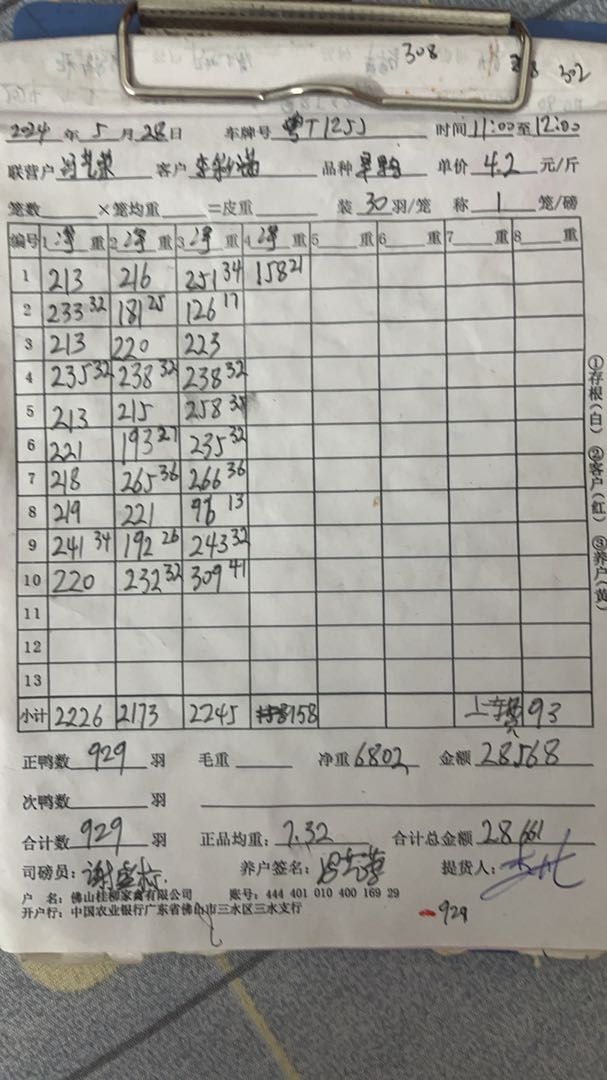 308
302
2024 年 5 月 28 日 车牌号 粤T1255 时间 11:00 至 12:00
联营户 客户 李 满 品种 单价 4.2 元/斤
笼数 ×笼均重 =皮重 装 30 羽/笼 称 1 笼/磅
编号 1 净 重 2 净 重 3 净 重 4 净 重 5 重 6 重 7 重 8 重
1 213 216 251 34 158 21
2 233 32 181 25 126 17
3 213 220 223
4 235 32 238 32 238 32
5 213 215 258 35
6 221 193 27 235 32
7 218 265 36 266 36
8 219 221 96 13
9 241 34 192 26 243 32
10 220 232 32 309 41
11
12
13
小计 2226 2173 2245 158 上车费 93
正鸭数 929 羽 毛重 净重 6802 金额 28568
次鸭数 羽
合计数 929 羽 正品均重: 7.32 合计总金额 28661
司磅员: 谢 养户签名: 提货人:
户 名: 佛山桂柳家禽有限公司 账号: 444 401 010 400 169 29
开户行: 中国农业银行广东省佛山市三水区三水支行
929
①存根(白) ②客户(红) ③养户(黄)